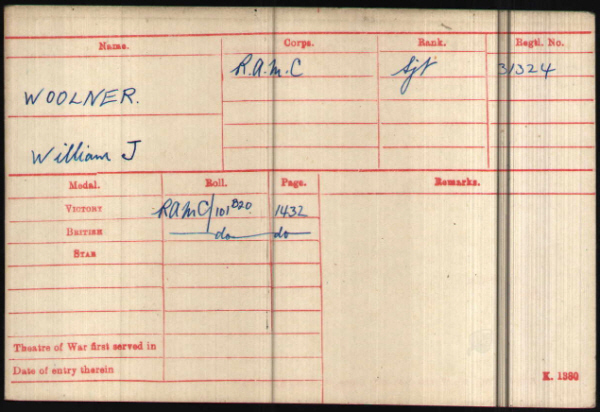 Name. Corps. Rank. Regtl. No.
R.A.M.C Sjt 31324
WOOLNER.
William J
Medal. Roll. Page. Remarks.
VICTORY RAMC/101B20. 1432
BRITISH do do
STAR
Theatre of War first served in
Date of entry therein
K. 1380